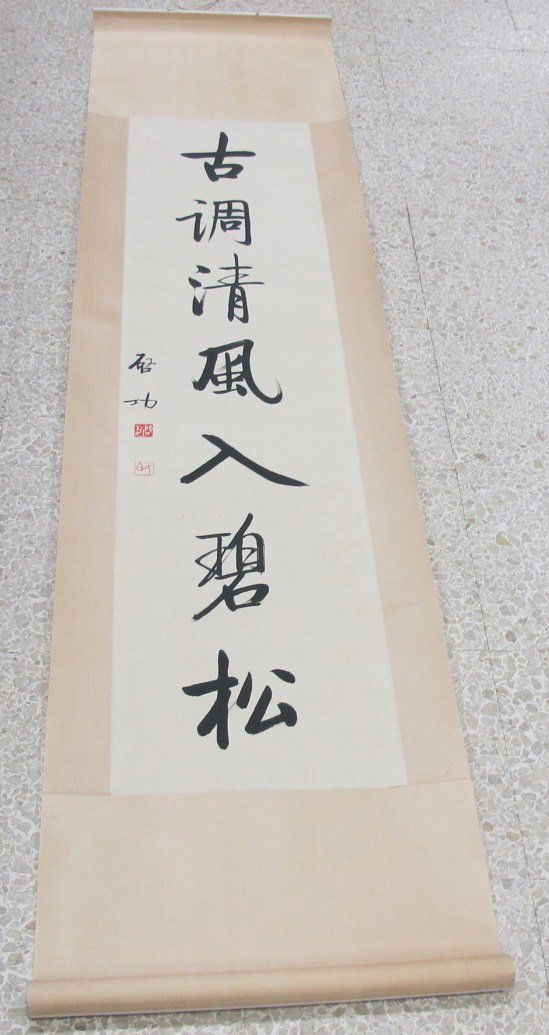 古调清風入碧松
启功